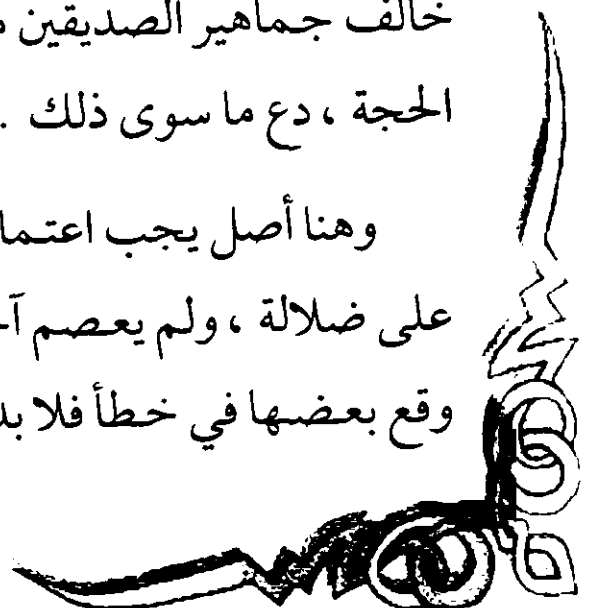 خالف جماهير الصديقين
الحجة ، دع ما سوى ذلك .
وهنا أصل يجب
على ضلالة ، ولم يعصم
وقع بعضها في خطأ فلا